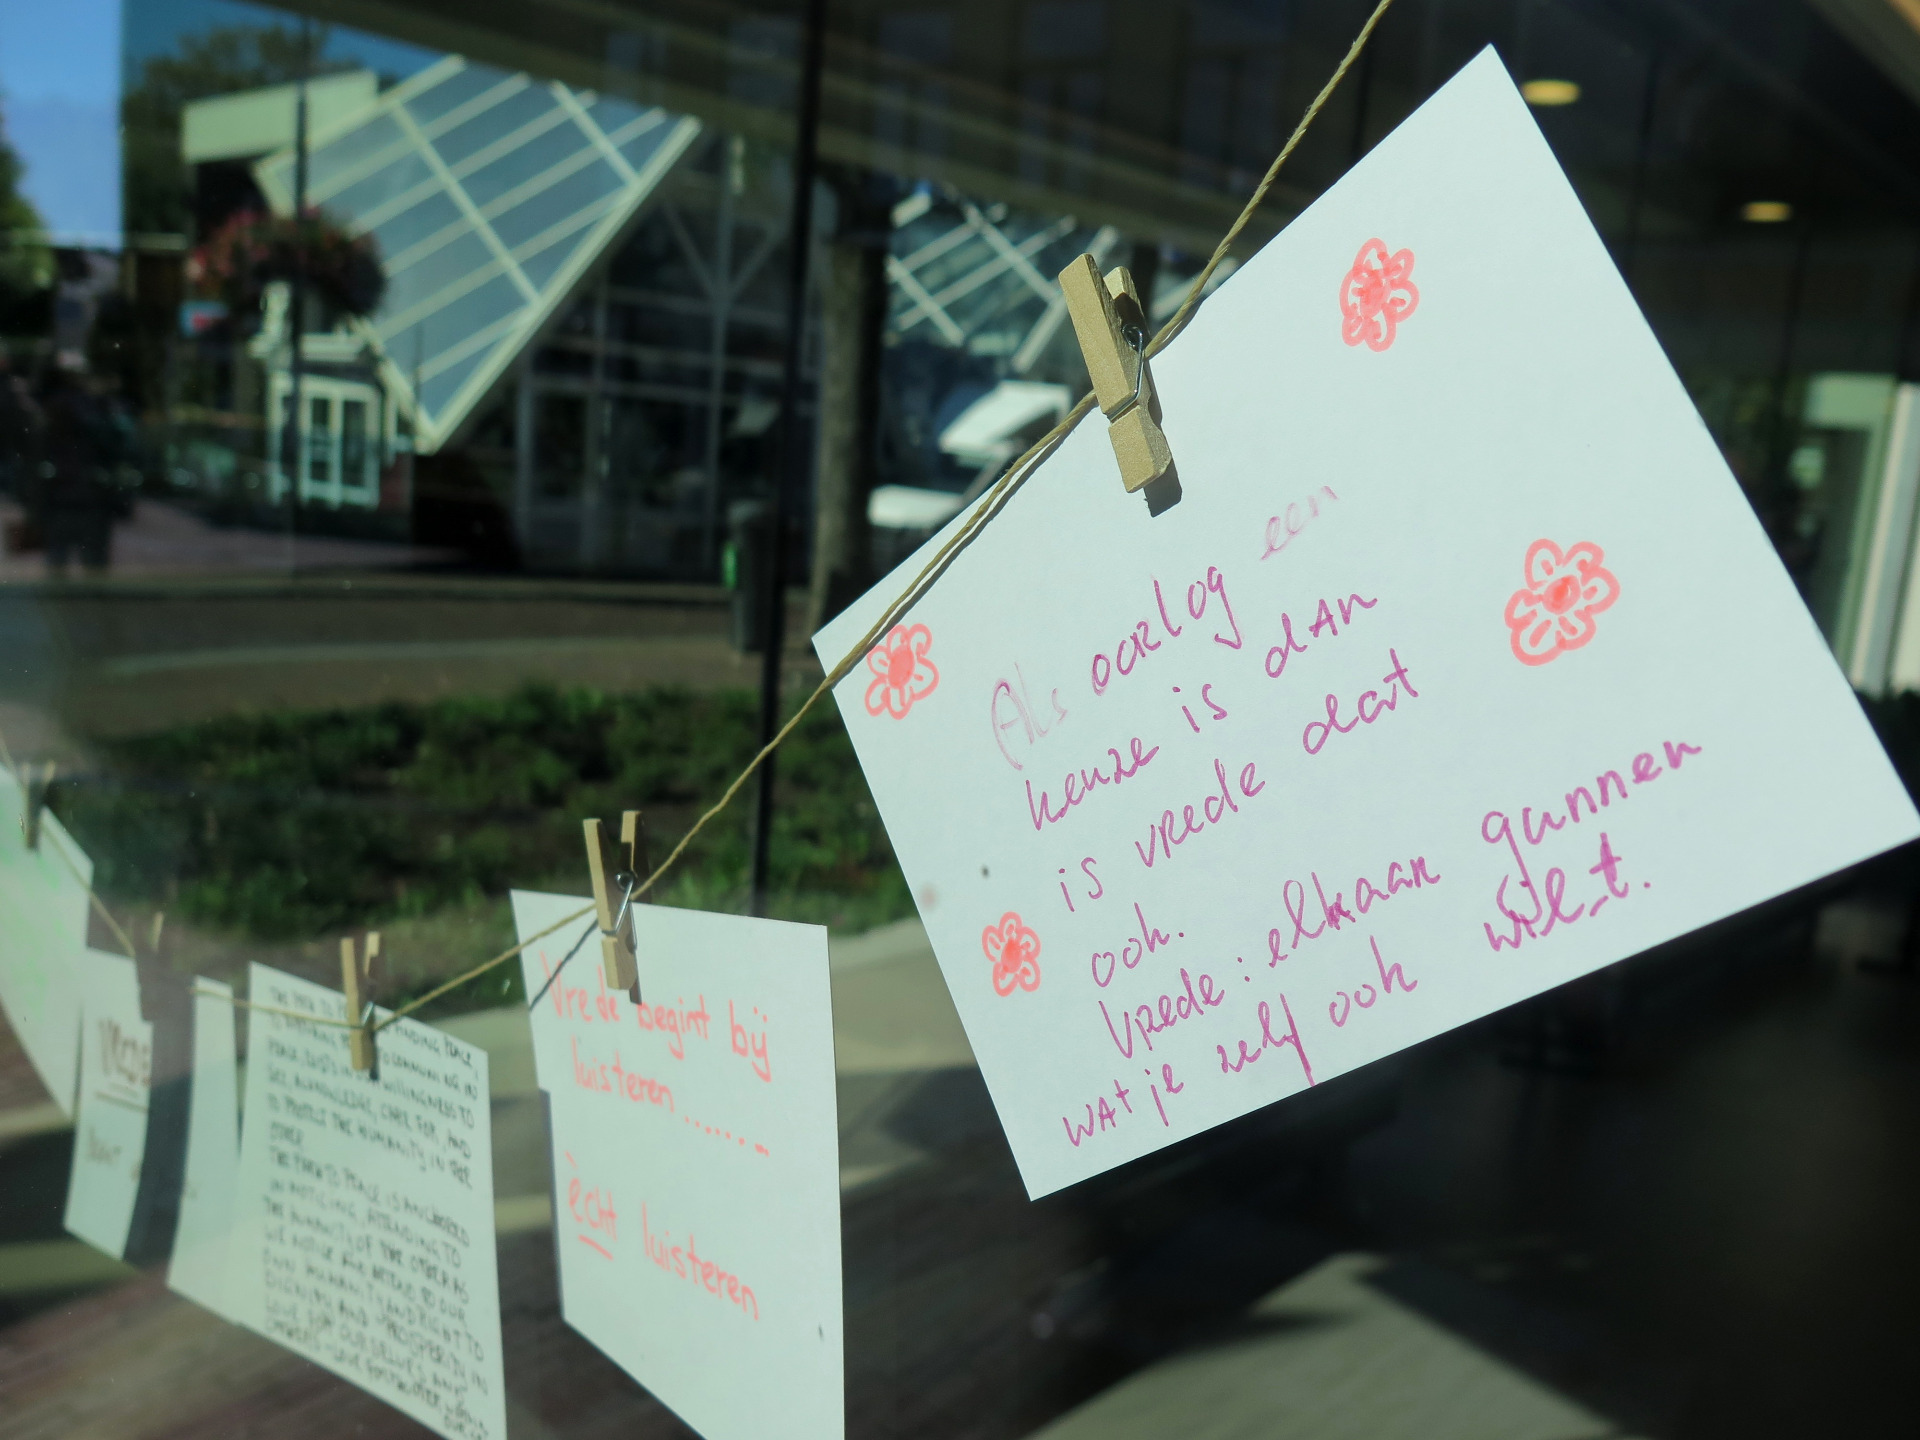 Als oorlog een
keuze is dan
is vrede dat
ook.
Vrede: elkaar gunnen
wat je zelf ook wilt.
Vrede begint bij
luisteren.......
ècht luisteren
FINDING PEACE
WILLINGNESS TO
SEE, ACKNOWLEDGE, CARE FOR, AND
TO PROTECT THE HUMANITY IN THE
OTHER
THE PATH TO PEACE IS ANCHORED
IN NOTICING, ATTENDING TO
THE HUMANITY OF THE OTHER AS
WE NOTICE AND ATTEND TO OUR
OWN HUMANITY AND RIGHT TO
DIGNITY AND PROSPERITY IN
LOVE FOR OURSELVES AND
VREDE